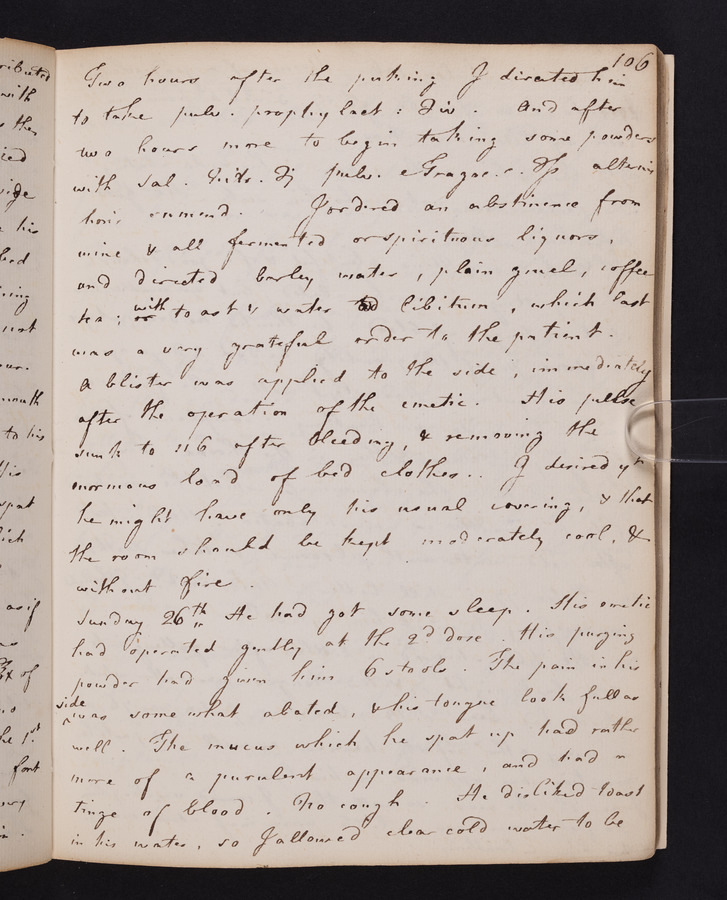 106
Two hours after the puking I directed him
to take pulv. prophylact: ʒiv. And after
two hours more to begin taking some powders
with Sal. Nitr. pulv. altering
horis
wine & all fermented or spirituous liquors,
and directed barley water, plain gruel, coffee
tea; with toast & water ad libitum, which last
was a very grateful order to the patient.
A blister was applied to the side, immediately
after the operation of the emetic. His pulse
sunk to 116 after bleeding, & removing the
enormous load of bed clothes. I desired yt
he might have only his usual covering, & that
the room should be kept moderately cool, &
without fire.
Sunday 26th He had got some sleep. His emetic
had operated gently at the 2d dose. His purging
powder had given him 6 stools. The pain in his
side was somewhat abated, & his tongue look full as
well. The mucus which he spat up had rather
more of a purulent appearance, and had a
tinge of blood. No cough. He disliked toast
in his water, so I allowed clear cold water to be